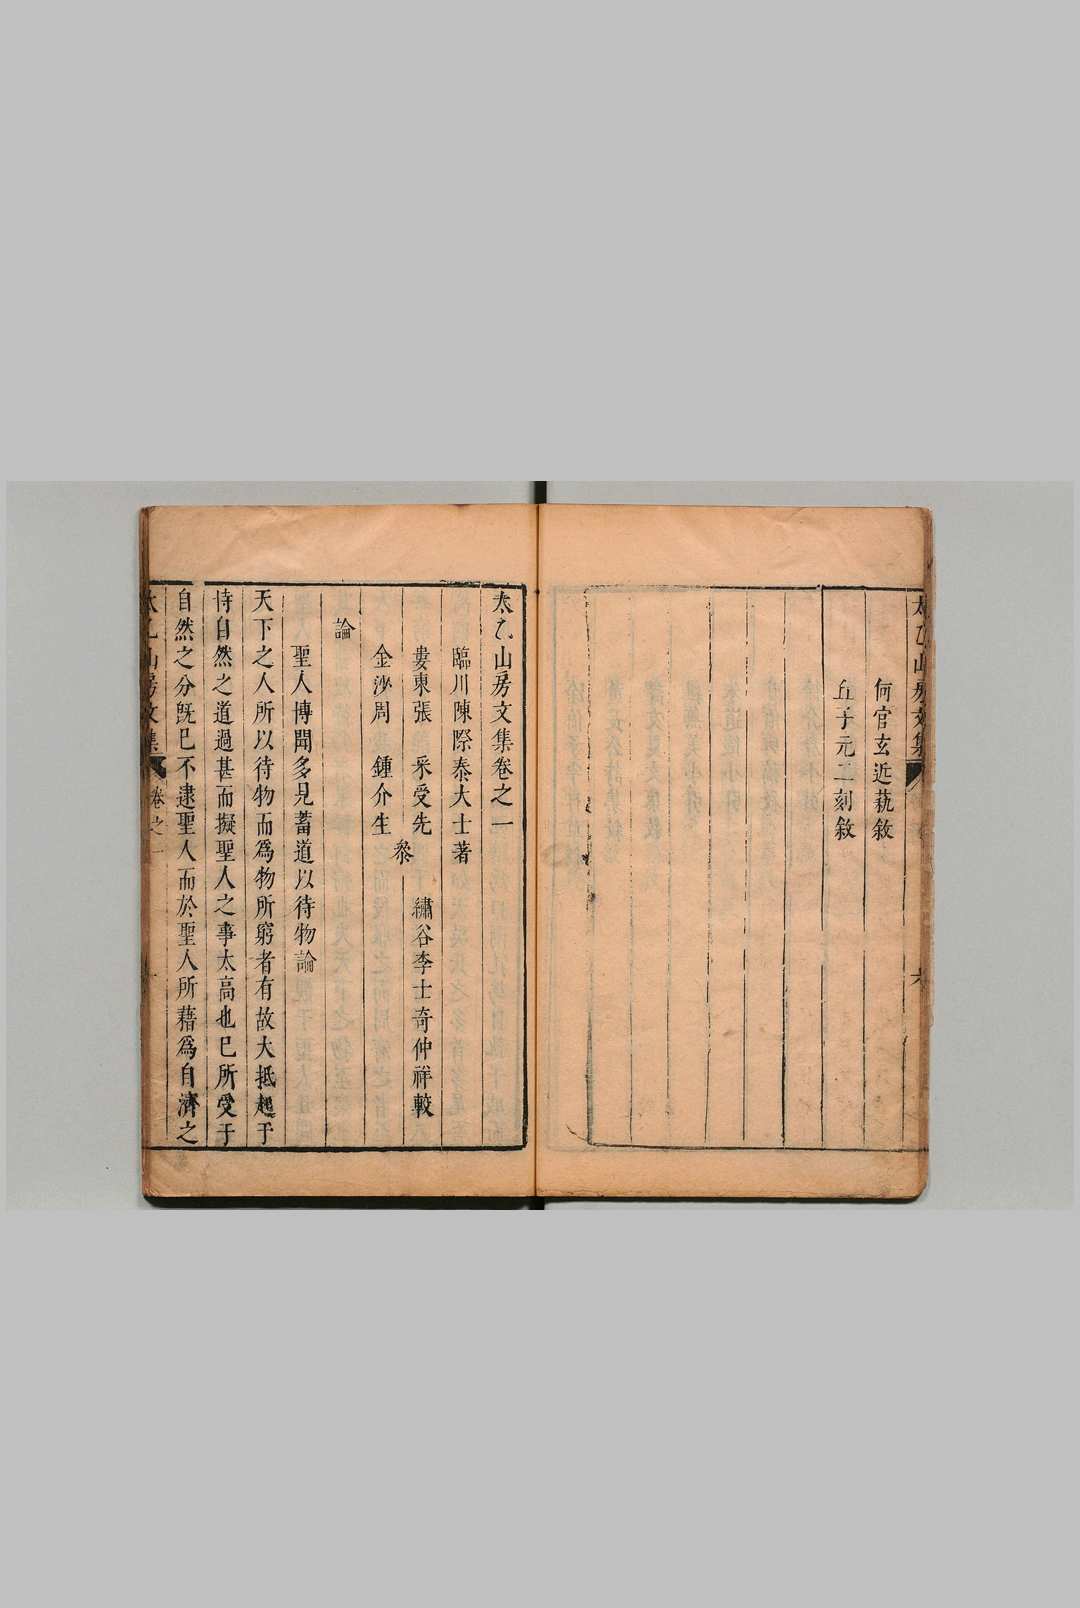 太乙山房文集 六
何官玄近藝敘
丘子元二刻敘
太乙山房文集卷之一
臨川陳際泰大士著
婁東張 采受先
金沙周 鍾介生
叅
繡谷李士奇仲祥較
論
聖人博聞多見蓄道以待物論
天下之人所以待物而爲物所窮者有故大抵起于
恃自然之道過甚而擬聖人之事太高也巳所受于
自然之分旣巳不逮聖人而於聖人所藉爲自濟之
太乙山房文集 卷之一 一